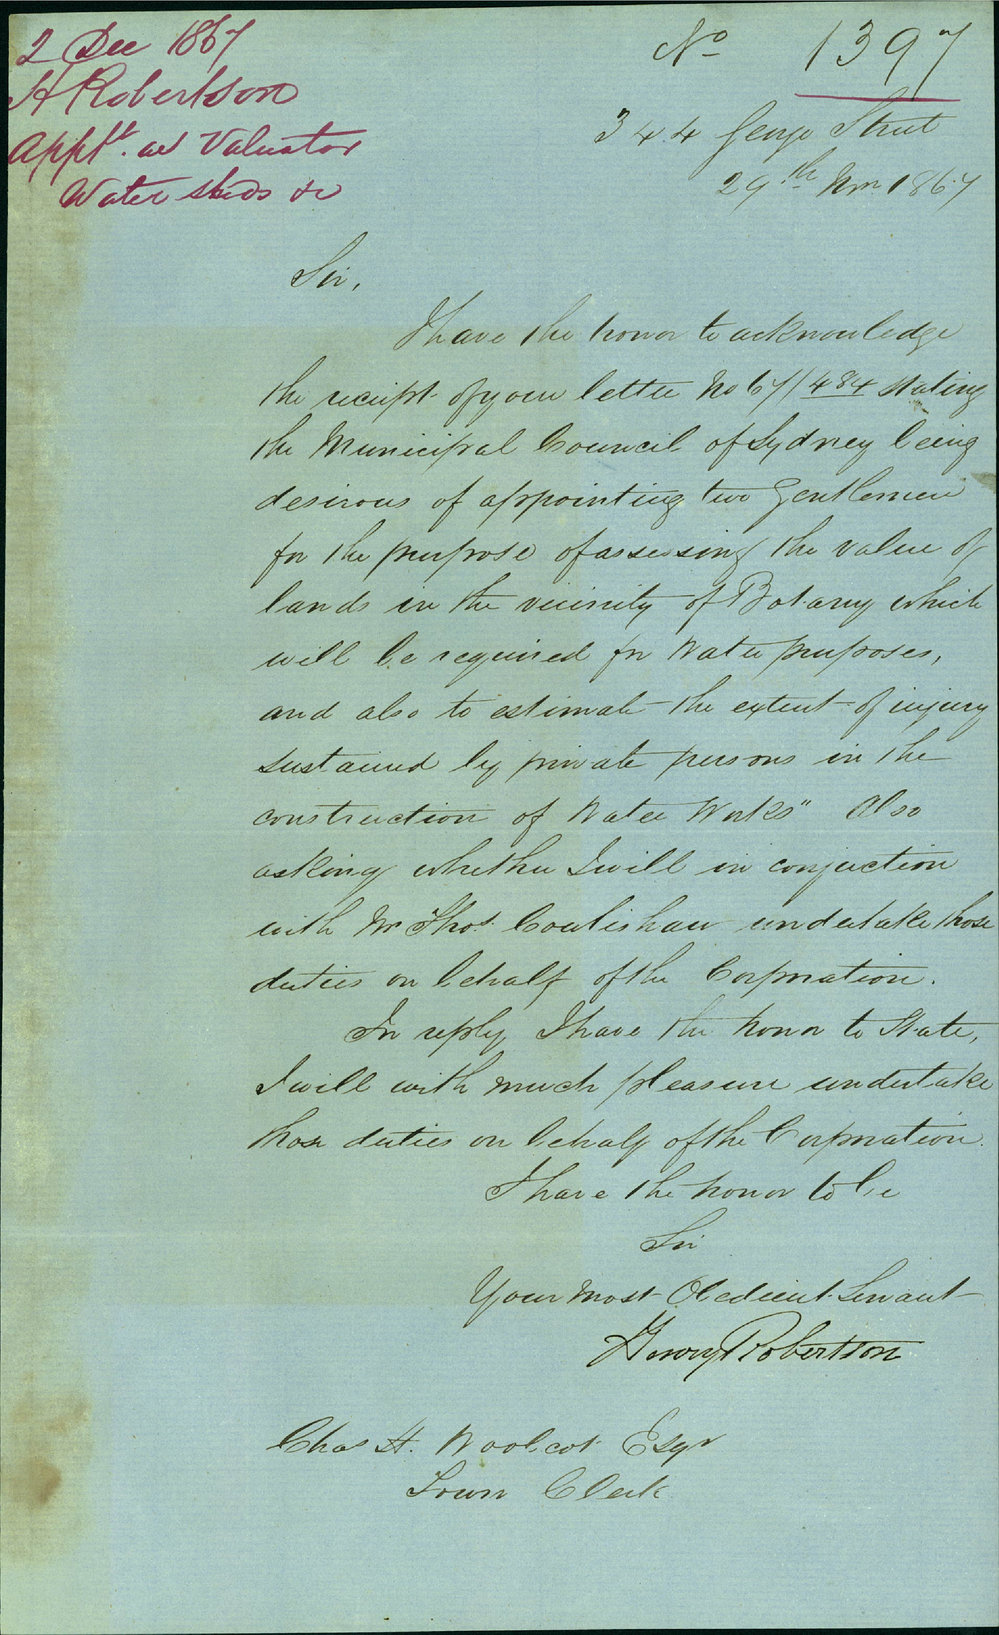 2 Dec 1867
H Robertson
Appt. as Valuator
Water sheds &c
No 1397
344 George Street
29th Nov. 1867
Sir,
I have the honor to acknowledge
the receipt of your letter No 67/484 stating
the Municipal Council of Sydney being
desirous of appointing two Gentlemen
for the purpose of assessing the value of
lands in the vicinity of Botany which
will be required for Water purposes,
and also to estimate the extent of injury
sustained by private persons in the
construction of Water Works" Also
asking whether I will in conjuction
with Mr Thos. Coulishaw undertake those
duties on behalf of the Corporation.
In reply I have the honor to State,
I will with much pleasure undertake
those duties on behalf of the Corporation.
I have the honor to be
Sir
Your most Obedient Servant
Henry Robertson
Chas H. Woolcot Esqr
Town Clerk